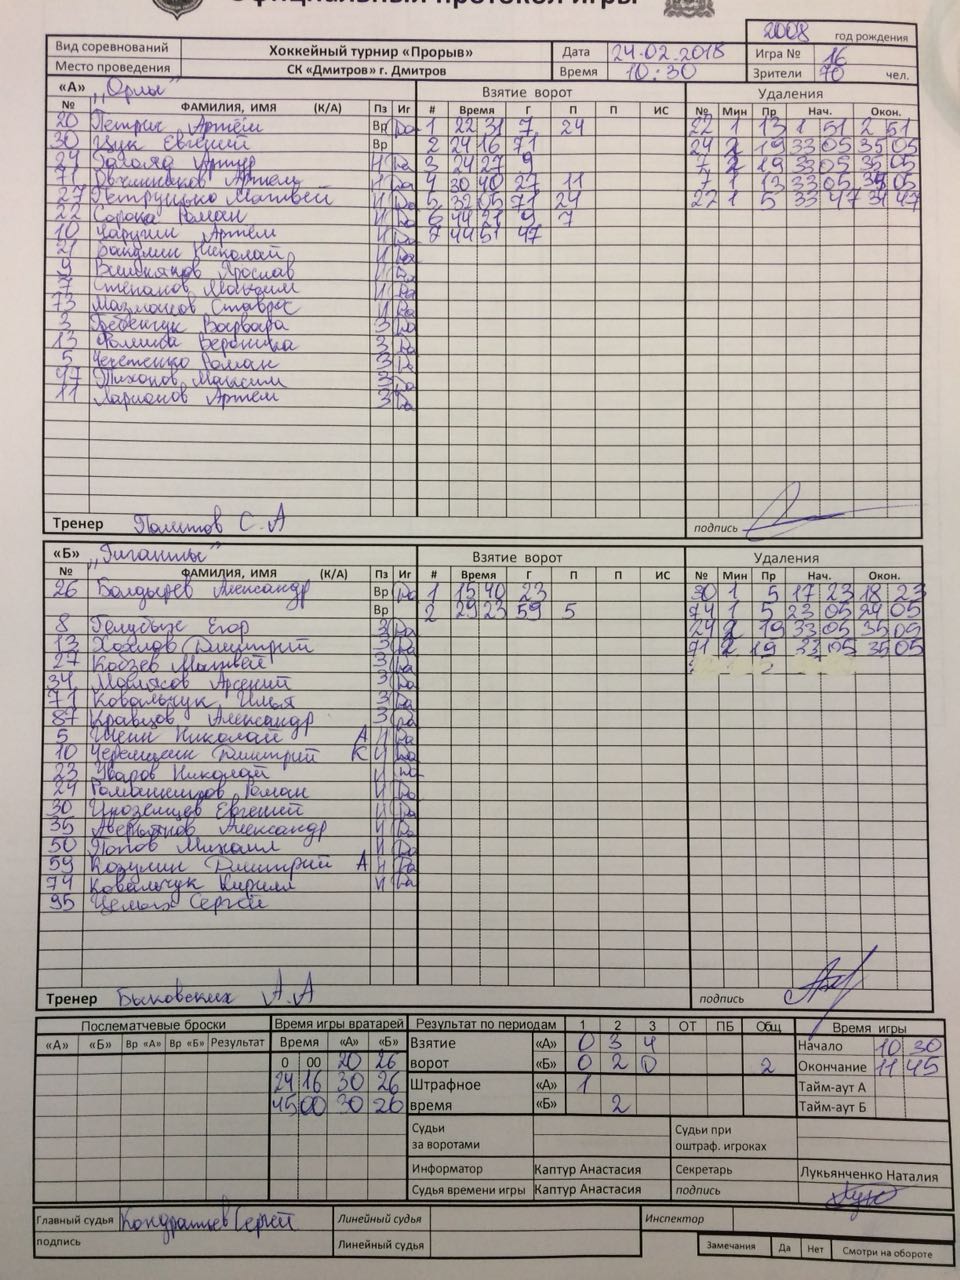 Официальный протокол игры
2008 год рождения
Вид соревнований Хоккейный турнир «Прорыв» Дата 24.02.2018 Игра № 16
Место проведения СК «Дмитров» г. Дмитров Время 10:30 Зрители 70 чел.
«А» „Орлы" Взятие ворот Удаления
№ ФАМИЛИЯ, ИМЯ (К/А) Пз Иг # Время Г П П ИС № Мин Пр Нач. Окон.
20 Петрис Артём Вр Да 1 22 31 7 24 22 1 13 1 51 2 51
30 Цук Евгений Вр 2 24 16 71 24 2 19 33 05 35 05
24 Артур Н Да 3 24 27 9 7 2 19 33 05 35 05
71 Овчинников Артём Н Да 4 30 40 27 11 7 1 13 33 05 05
27 Петрунько Матвей Н Да 5 32 05 71 24 22 1 5 33 47 34 47
22 Сорока Роман Н Да 6 44 21 9 7
10 Чаругин Артём Н Да 7 44 51 47
21 Бакулин Николай Н Да
9 Ярослав Н Да
7 Степанов Максим Н Да
73 Мазманов Ставрос Н Да
3 Бебенчук Варвара З Да
13 Фомина Вероника З Да
5 Роман З Да
47 Тихонов Максим З Да
11 Ларионов Артём З Да
Тренер С.А подпись
«Б» „Гиганты" Взятие ворот Удаления
№ ФАМИЛИЯ, ИМЯ (К/А) Пз Иг # Время Г П П ИС № Мин Пр Нач. Окон.
26 Болдырев Александр Вр Да 1 15 40 23 30 1 5 17 23 18 23
Вр 2 29 23 59 5 74 1 5 23 05 24 05
8 Голубых Егор З Да 24 2 19 33 05 35 05
13 Хохлов Дмитрий З Да 71 2 19 33 05 35 05
27 Кобзев Матвей З Да
34 Мавлясов Арсений З Да
71 Ковальчук Илья З Да
87 Кравцов Александр З Да
5 Шеин Николай А Н Да
10 Черемшеин Дмитрий К Н Да
23 Уваров Николай Н Да
24 Романенков Роман Н Да
30 Иноземцев Евгений Н Да
35 Аверьянов Александр Н Да
50 Попов Михаил Н Да
59 Козулин Дмитрий А Н Да
74 Ковальчук Кирилл Н Да
95 Сергей
Тренер Быковских А.А подпись
Послематчевые броски Время игры вратарей Результат по периодам 1 2 3 ОТ ПБ Общ Время игры
«А» «Б» Вр «А» Вр «Б» Результат Время «А» «Б» Взятие «А» 0 3 4 Начало 10 30
0 00 20 26 ворот «Б» 0 2 0 2 Окончание 11 45
24 16 30 26 Штрафное «А» 1 Тайм-аут А
45 00 30 26 время «Б» 2 Тайм-аут Б
Судьи за воротами Судьи при оштраф. игроках
Информатор Каптур Анастасия Секретарь Лукьянченко Наталия
Судья времени игры Каптур Анастасия подпись
Главный судья Кондратьев Сергей Линейный судья Инспектор
подпись Линейный судья Замечания Да Нет Смотри на обороте